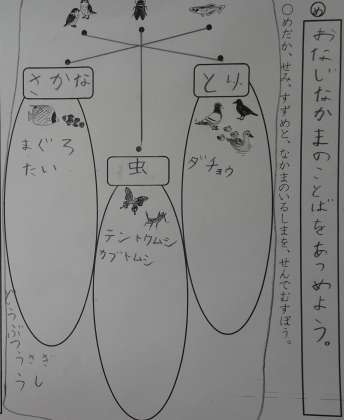 め
おなじなかまのことばをあつめよう。
○めだか、せみ、すずめと、なかまのいるしまを、せんでむすぼう。
とり
ダチョウ
虫
テントウムシ
カブトムシ
さかな
まぐろ
たい
どうぶつ
うさぎ
うし